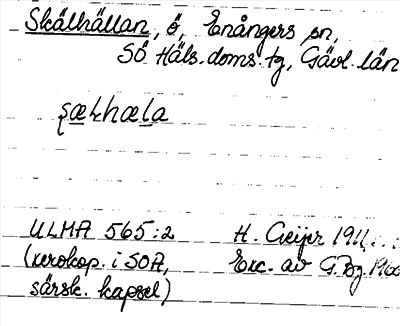 Skälhällan, ö, Enångers sn,
Sö Häls. doms. tg, Gävl. län
ULMA 565:2 H. Geijer 1911
(xerokop. i SOA, Exc. av G.Bg. 1966
särsk. kapsel)